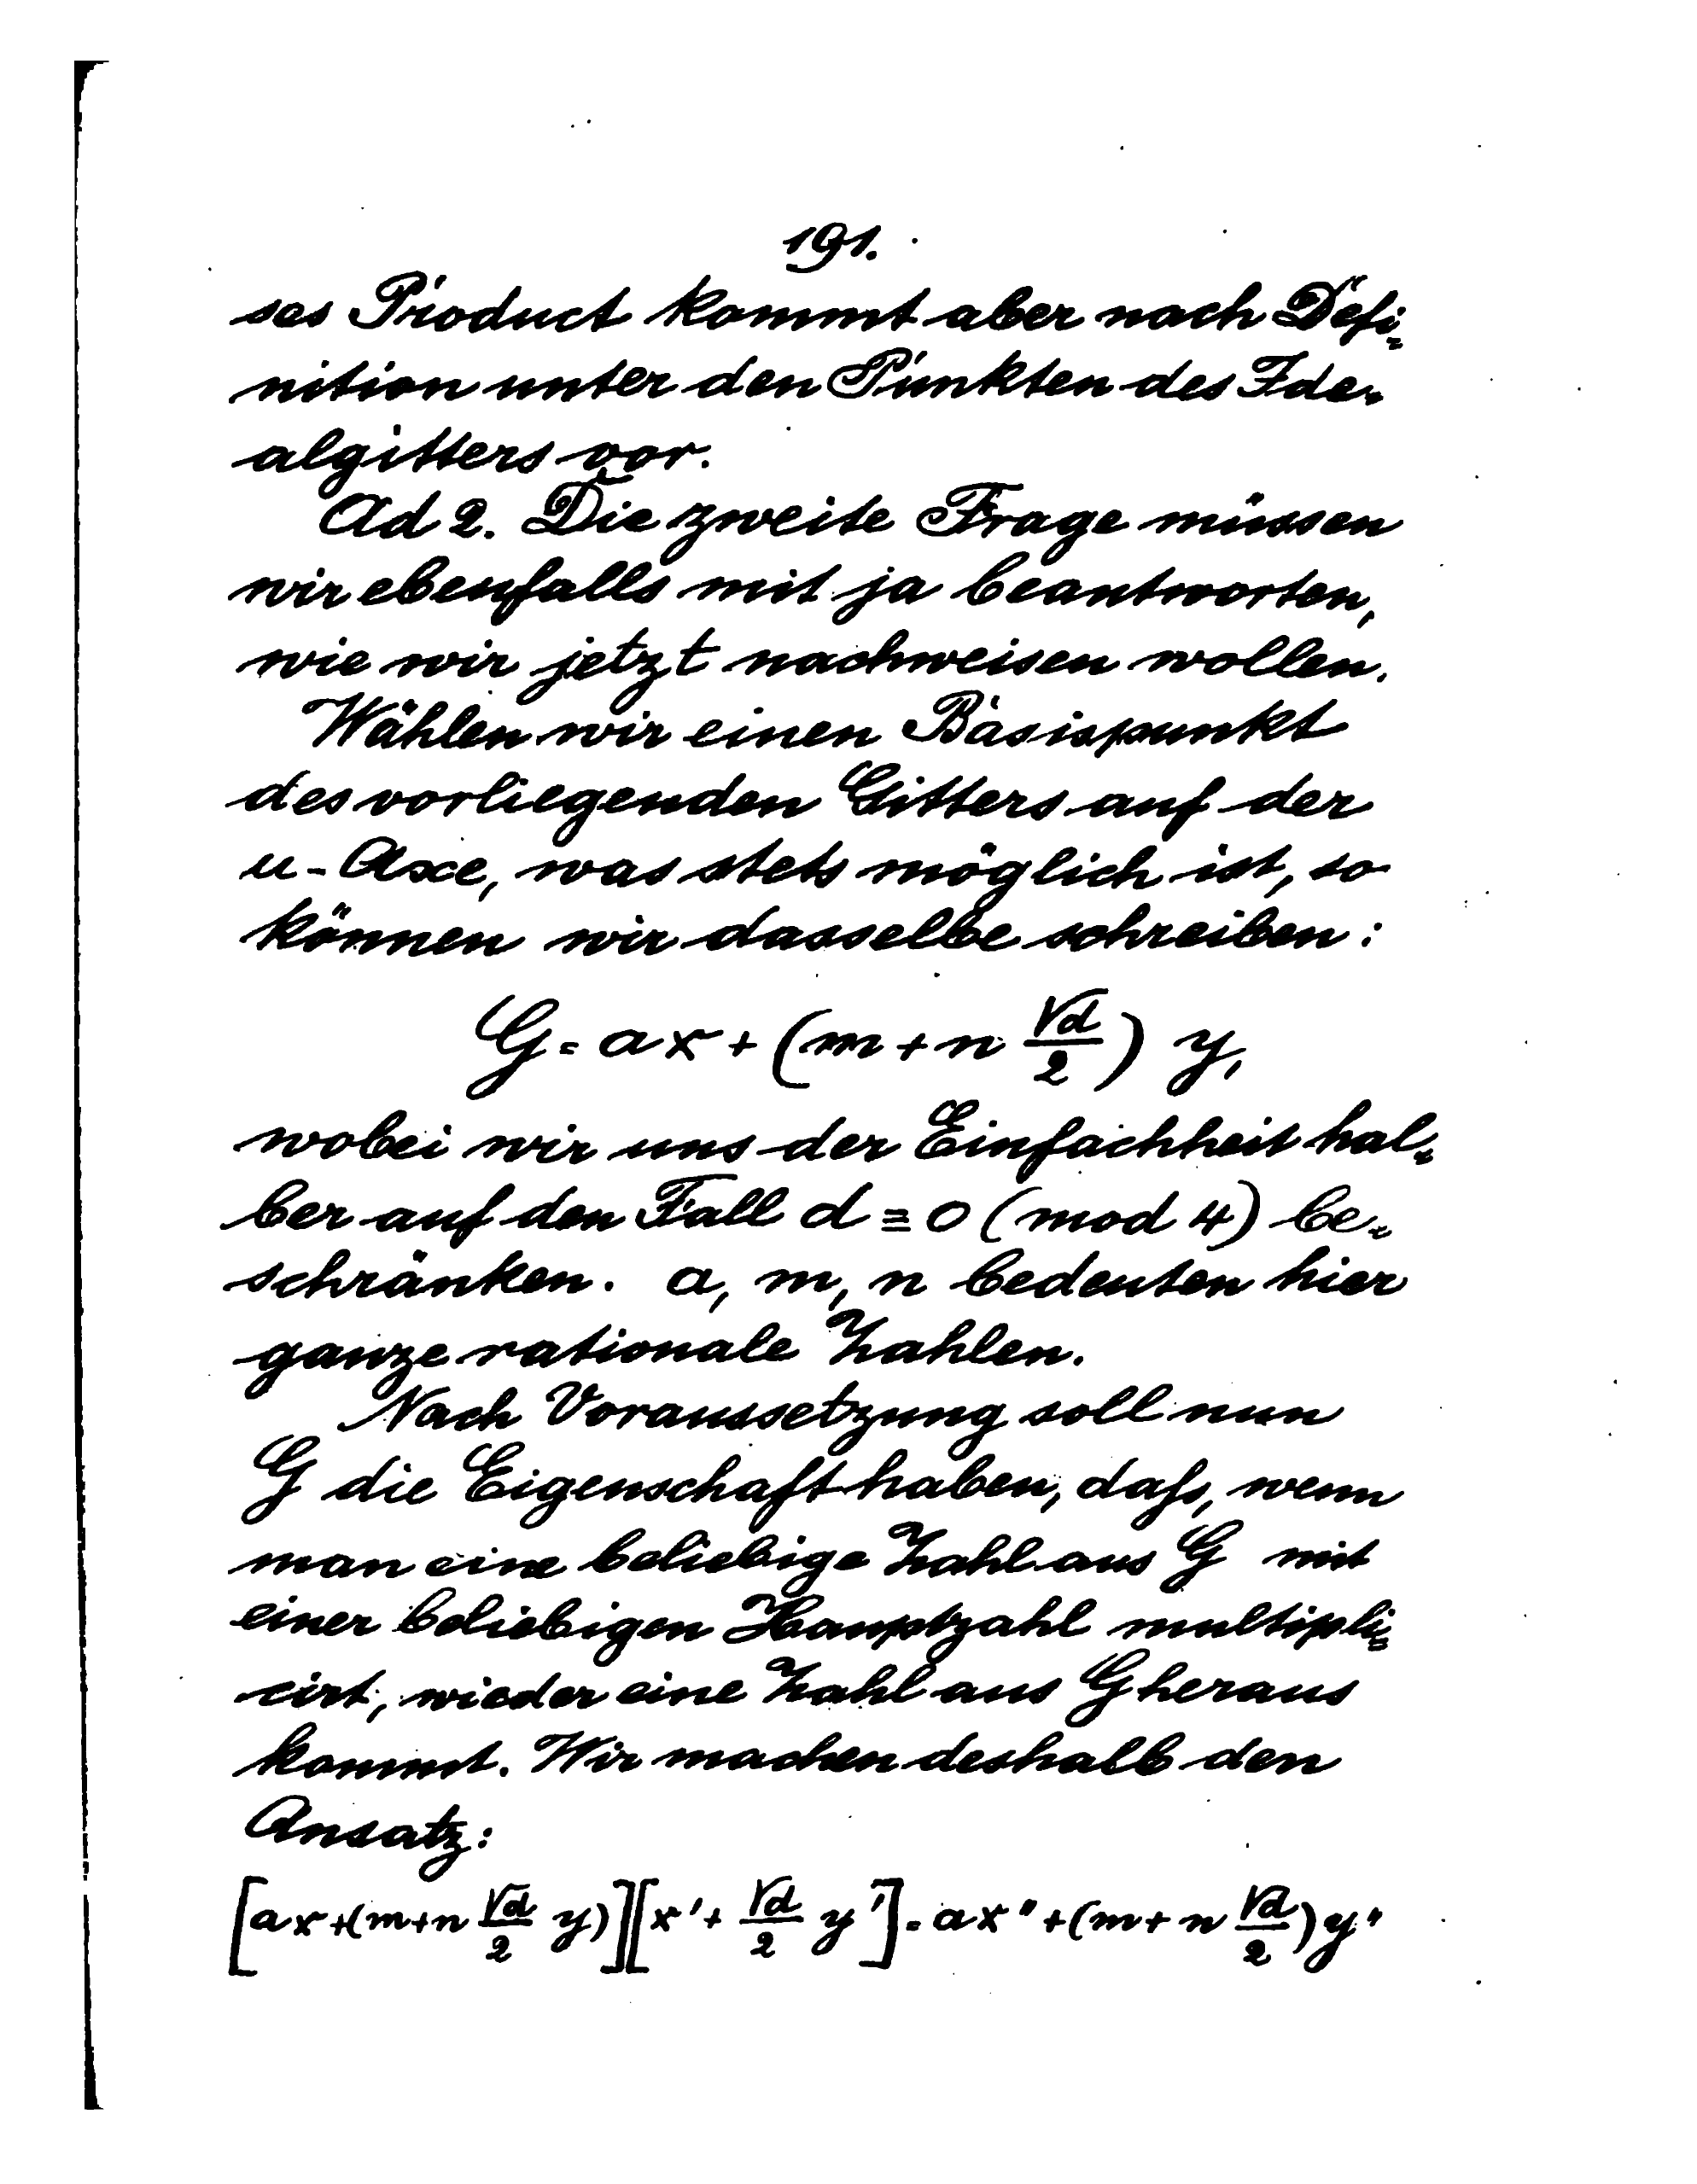 191.
ses Product kommt aber nach Defi-
nition unter den Punkten des Ide-
algitters vor.
Ad 2. Die zweite Frage müssen
wir ebenfalls mit ja beantworten,
wie wir jetzt nachweisen wollen.
Wählen wir einen Basispunkt
des vorliegenden Gitters auf der
u-Axe, was stets möglich ist, so
können wir dasselbe schreiben:
G = ax + (m + n √d/2) y,
wobei wir uns der Einfachheit hal-
ber auf den Fall d ≡ 0 (mod 4) be-
schränken. a, m, n bedeuten hier
ganze rationale Zahlen.
Nach Voraussetzung soll nun
G die Eigenschaft haben, daß, wenn
man eine beliebige Zahl aus G mit
einer beliebigen Hauptzahl multipli-
cirt, wieder eine Zahl aus G heraus
kommt. Wir machen deshalb den
Ansatz:
[ax + (m + n √d/2 y)][x' + √d/2 y'] = ax" + (m + n √d/2) y"